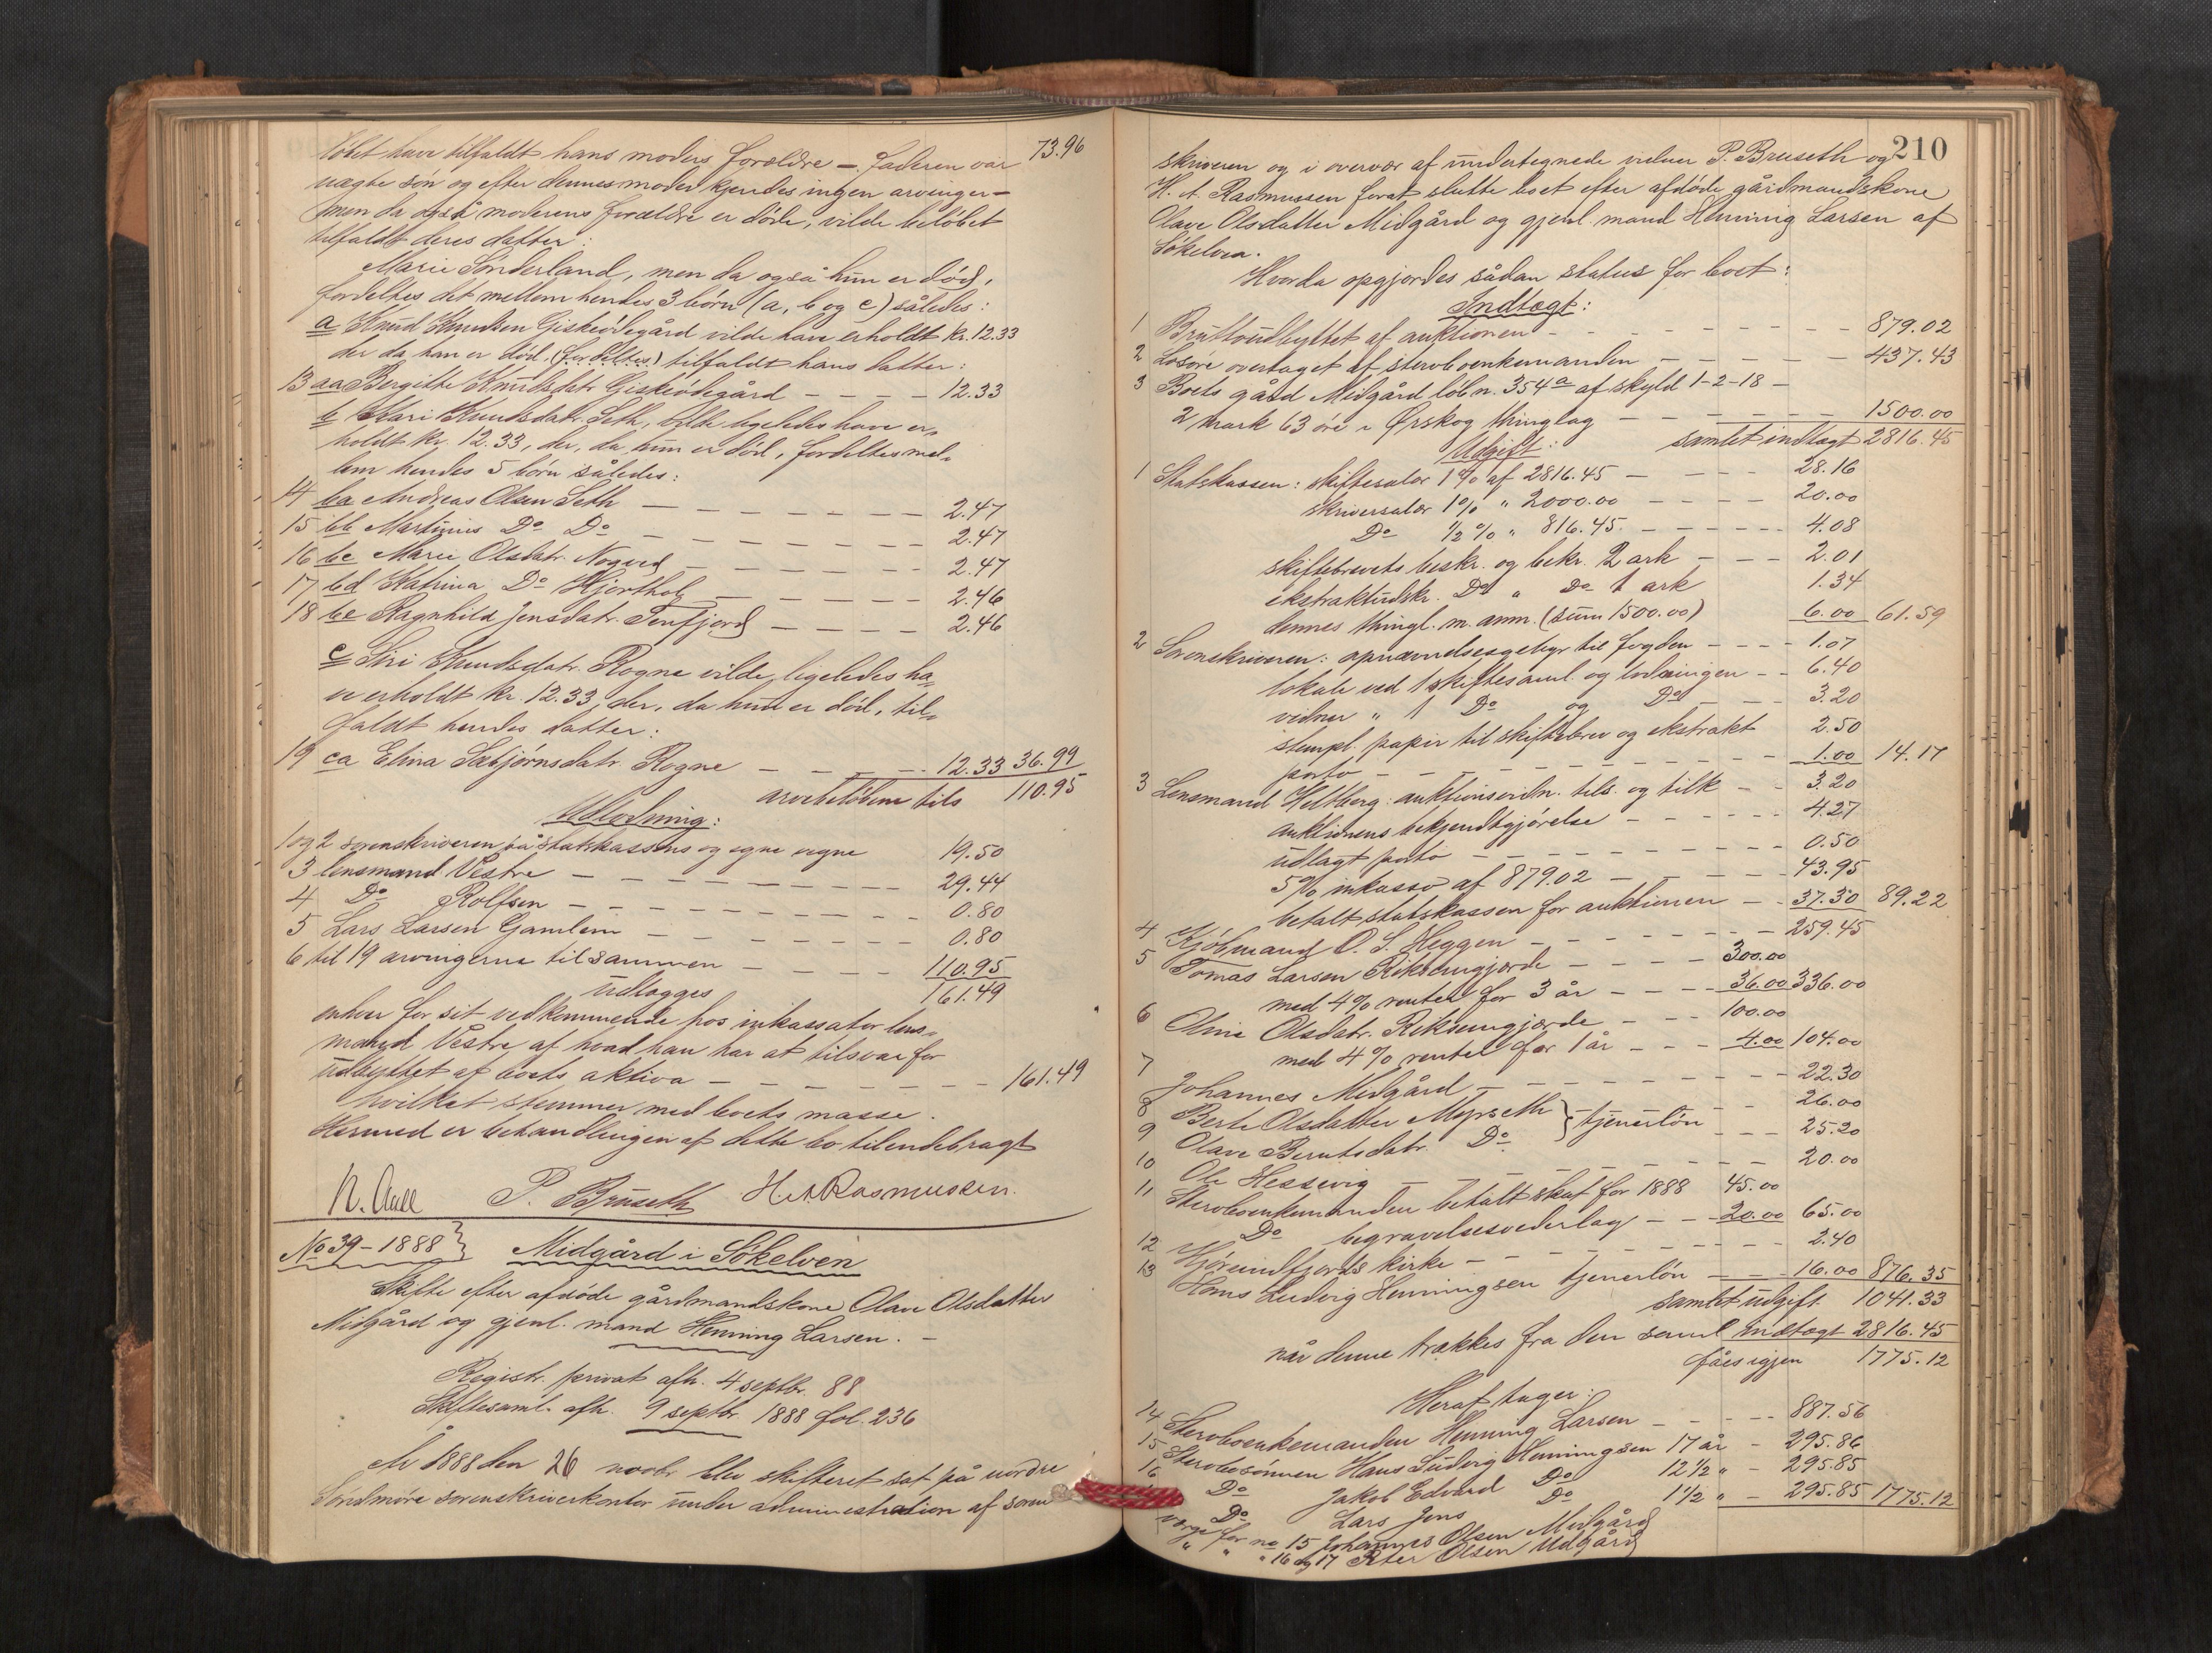 löbet have tilfaldt hans moders forældre – faderen var 73.96
uægte sön og efter dennes moder kjendes ingen arvinger –
men da også moderens forældre er döde, vilde belöbet
tilfaldt deres datter:
Marie Sönderland, men da også hun er död,
fordeltes det mellem hendes 3 börn (a, b og c) således:
a Knud Knudsen Giskeödegård vilde have erholdt kr. 12.33
der da han er död, (fordeltes) tilfaldt hans datter:
13 aa Bergitte Knudsdatr. Giskeödegård – – – – 12.33
b Kari Knudsdatr. Seth, vilde ligeledes have er-
holdt kr. 12.33, der, da hun er död, fordeltes mel-
lem hendes 5 börn således:
14 ba Andreas Olsen Seth – – – – – – 2.47
15 bb Martinus Do Do – – – – – – 2.47
16 bc Marie Olsdatr. Nogerd – – – – – 2.47
17 bd Katrina Do Hjorthol – – – – – 2.46
18 be Ragnhild Jensdatr. Tenfjord – – – – 2.46
c Siri Knudsdatr. Rogne vilde ligeledes ha-
ve erholdt kr. 12.33, der, da hun er död, til-
faldt hendes datter:
19 ca Elina Sæbjörnsdatr. Rogne – – – – 12.33 36.99
arvebelöbene tils 110.95
Udlodning:
1 og 2 sorenskriveren på statskassens og egne vegne 19.50
3 lensmand Vestre – – – – – – – – 29.44
4 Do Rolfsen – – – – – – – – 0.80
5 Lars Larsen Gamlem – – – – – – – 0.80
6 til 19 arvingerne tilsammen – – – – 110.95
udlægges 161.49
enhver for sit vedkommende hos inkassator lens-
mand Vestre af hvad han har at tilsvare for
udbyttet af boets aktiva – – – – – – – 161.49
hvilket stemmer med boets masse.
Hermed er behandlingen af dette bo tilendebragt
N. Aall P. Bruseth H. A. Rasmussen.
No 39 – 1888 } Midgård i Sökelven
Skifte efter afdöde gårdmandskone Olave Olsdatter
Midgård og gjenl. mand Henning Larsen. –
Registr. privat afh. 4 septbr. 88
Skiftesaml. afh. 9 septbr. 1888 fol. 236
År 1888 den 26 novbr. blev skifteret sat på nordre
Söndmöre sorenskriverkontor under administration af soren
210
skriveren og i overvær af undertegnede vidner P. Bruseth og
H. A. Rasmussen forat slutte boet efter afdöde gårdmandskone
Olave Olsdatter Midgård og gjenl. mand Henning Larsen af
Sökelven.
Hvorda opgjordes sådan status for boet:
Indtægt:
1 Bruttoudbyttet af auktionen – – – – – – – – – 879.02
2 Lösöre overtaget af stervboenkemanden – – – – – – 437.43
3 Boets gård Midgård löb n. 354a af skyld 1-2-18 –
2 mark 63 öre i Ørskog thinglag – – – – – – 1500.00
Udgift: samlet indtægt 2816.45
1 Statskassen: skiftesalær 1% af 2816.45 – – – – 28.16
skriversalær 1% " 2000.00 – – – – 20.00
Do 1/2% " 816.45. – – – – – 4.08
skiftebrevets beskr. og bekr. 2 ark – – – 2.01
ekstraktudskr. Do " Do 1 ark 1.34
dennes thingl. m. anm. (sum 1500.00) 6.00 61.59
2 Sorenskriveren: opnævnelsesgebyr til fogden – – – – 1.07
lokale ved 1 skiftesaml. og lodningen – – 6.40
vidner " 1 Do og Do – – – 3.20
stempl. papir til skiftebrev og ekstrakt 2.50
porto – – – – – – – – – – – 1.00 14.17
3 Lensmand Heltberg: auktionsvidn. tils. og tilk – – 3.20
auktionens bekjendtgjörelse – – – – – 4.27
udlagt porto – – – – – – – – 0.50
5% inkasso af 879.02 – – – – – – 43.95
betalt statskassen for auktionen – – 37.30 89.22
4 Kjöbmand O. S. Heggen – – – – – – – – 259.45
5 Tomas Larsen Riksemgjærde – – – – 300.00
med 4% renter for 3 år – – – – 36.00 336.00
6 Oline Olsdatr. Riksemgjærde – – – 100.00
med 4% renter for 1 år – – – 4.00 104.00
7 Johannes Midgård – – – – – – – – – – 22.30
8 Berte Olsdatter Myrseth } tjenerlön – – 26.00
9 Olave Berntsdatr. Do – – – 25.20
10 Ole Hessevig – – – – – – – – – 20.00
11 Stervboenkemanden betalt skat for 1888 45.00
Do begravelsesvederlag – – 20.00 65.00
12 Hjörundfjords kirke – – – – – – – – – 2.40
13 Hans Ludvig Henningsen tjenerlön – – – 16.00 876.35
samlet udgift 1041.33
når denne trækkes fra den saml indtægt 2816.45
fåes igjen 1775.12
Heraf tager:
14 Stervboenkemanden Henning Larsen – – – – – 887.56
15 Stervbosönnen Hans Ludvig Henningsen 17 år – 295.86
16 Do Jakob Edvard Do 12 1/2 " – 295.85
Do Lars Jens Do 1 1/2 " – 295.85 1775.12
Værge for no 15 Johannes Olsen Midgård
" " " 16 og 17 Peter Olsen Midgård